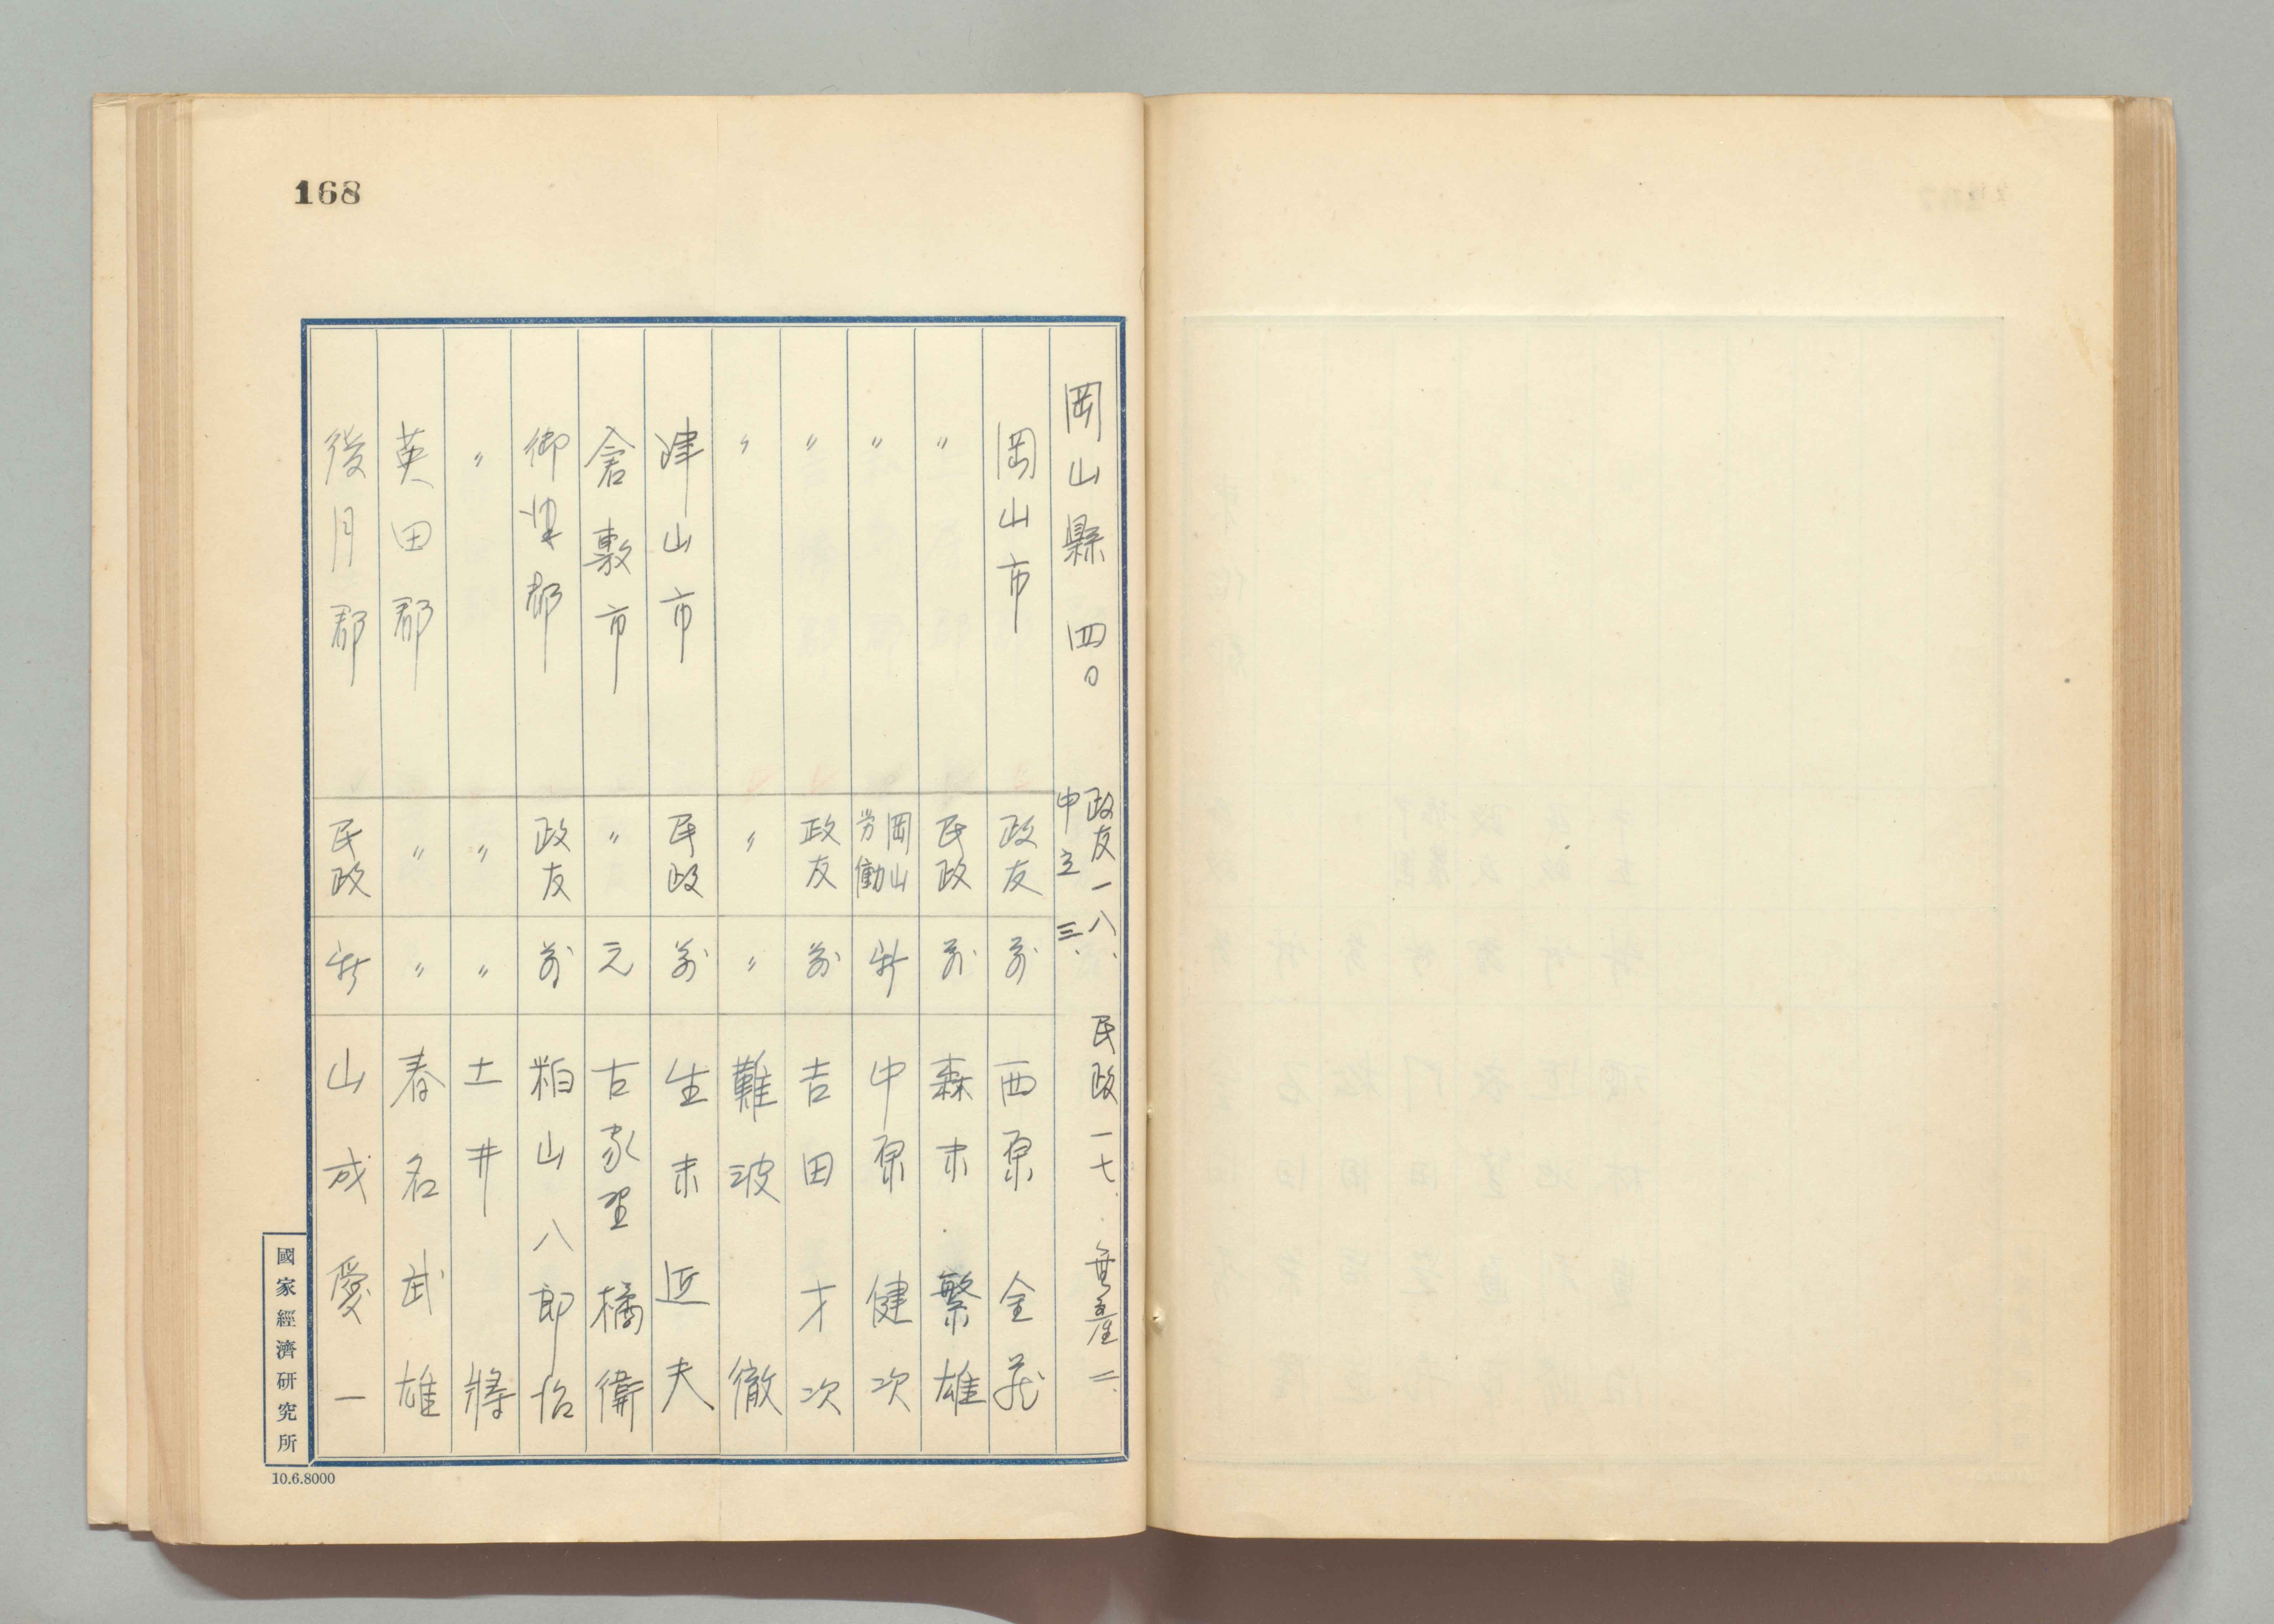 168
岡山縣 四〇 政友一八、民政一七、無產二、
中立三、
岡山市 政友 前 西原金蔵
〃 民政 前 森末繁雄
〃 岡山労働 新 中原健次
〃 政友 前 吉田才次
〃 〃 〃 難波徹
津山市 民政 前 生末近夫
倉敷市 〃 元 古家野橘衛
御津郡 政友 前 粕山八郎治
〃 〃 〃 土井将
英田郡 〃 〃 春名武雄
後月郡 民政 新 山成愛一
國家經濟硏究所
10.6.8000